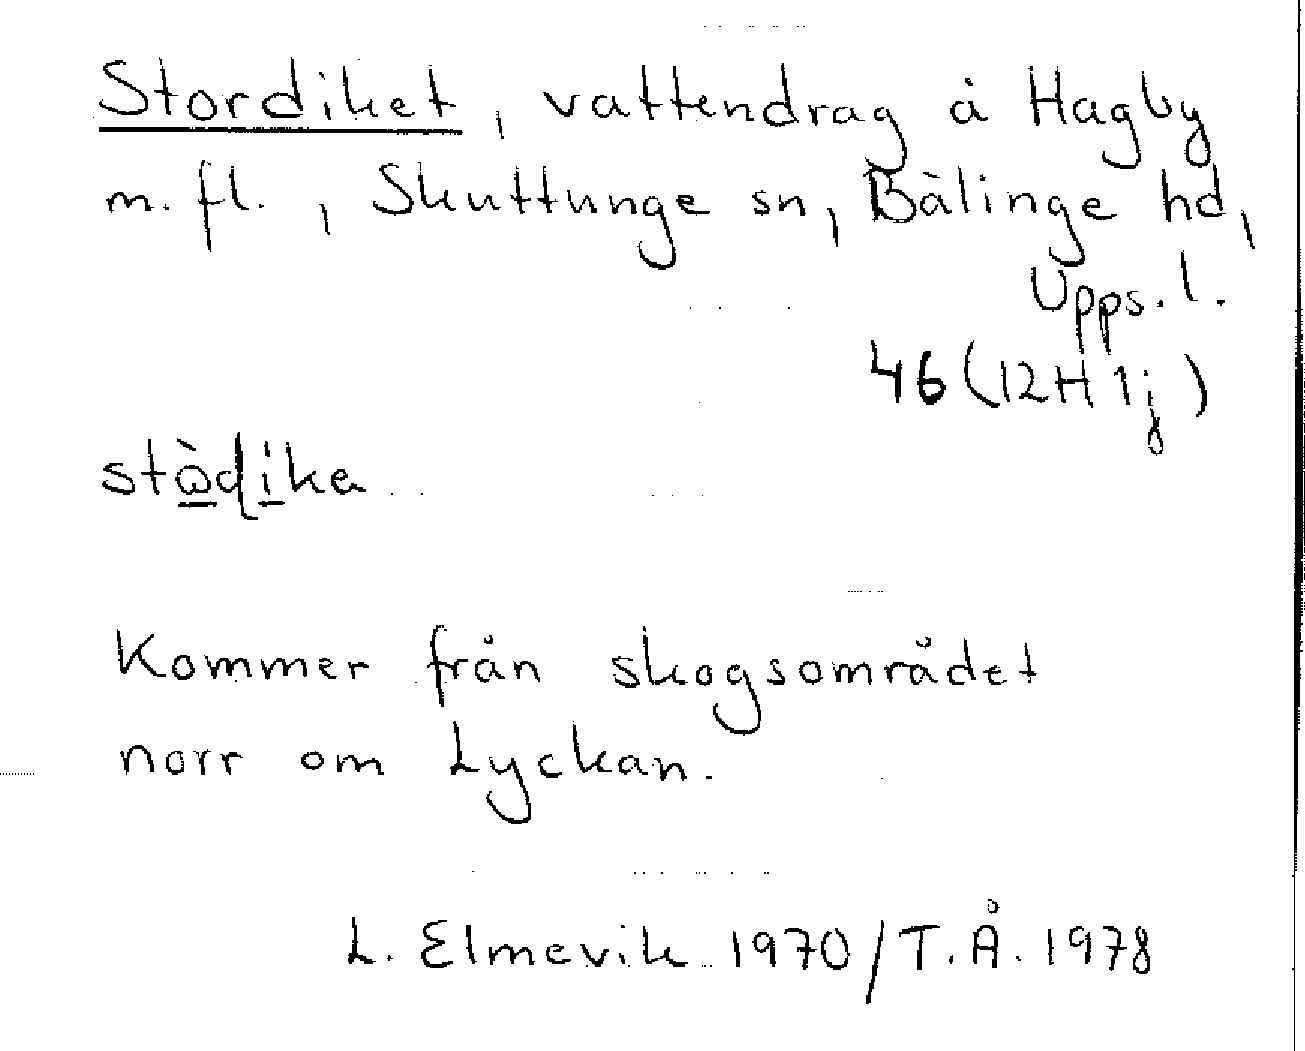 Stordiket, vattendrag å Hagby
m.fl., Skuttunge sn, Bälinge hd,
Upps. l.
46 (12H 1j)
Kommer från skogsområdet
norr om Lyckan.
L. Elmevik 1970/T.Å. 1978